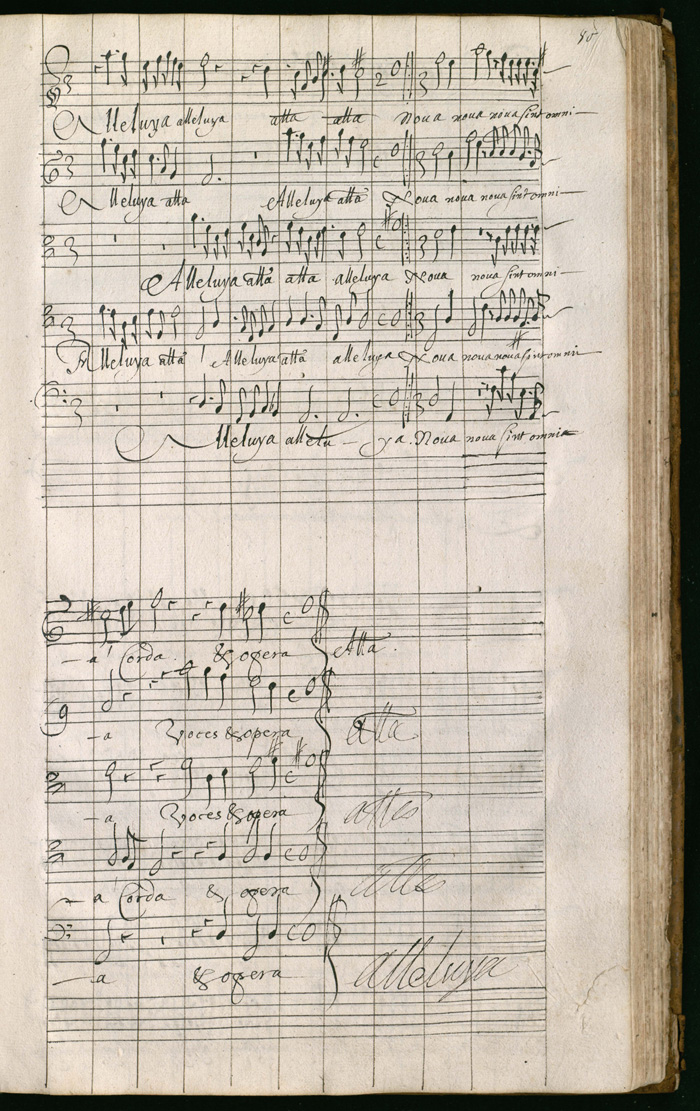 Alleluya alleluya atta atta Noua noua noua sint omni
Alleluya atta Alleluya atta Noua noua noua sint omni
Alleluya atta atta alleluya Noua noua sint omni
Alleluya atta Alleluya atta alleluya Noua noua noua sint omni
Alleluya allelu - ya. Noua noua sint omnia
- a Corda. & opera Atta.
- a Voces & opera atta
- a Voces & opera
a Corda & opera
- a & opera alleluya